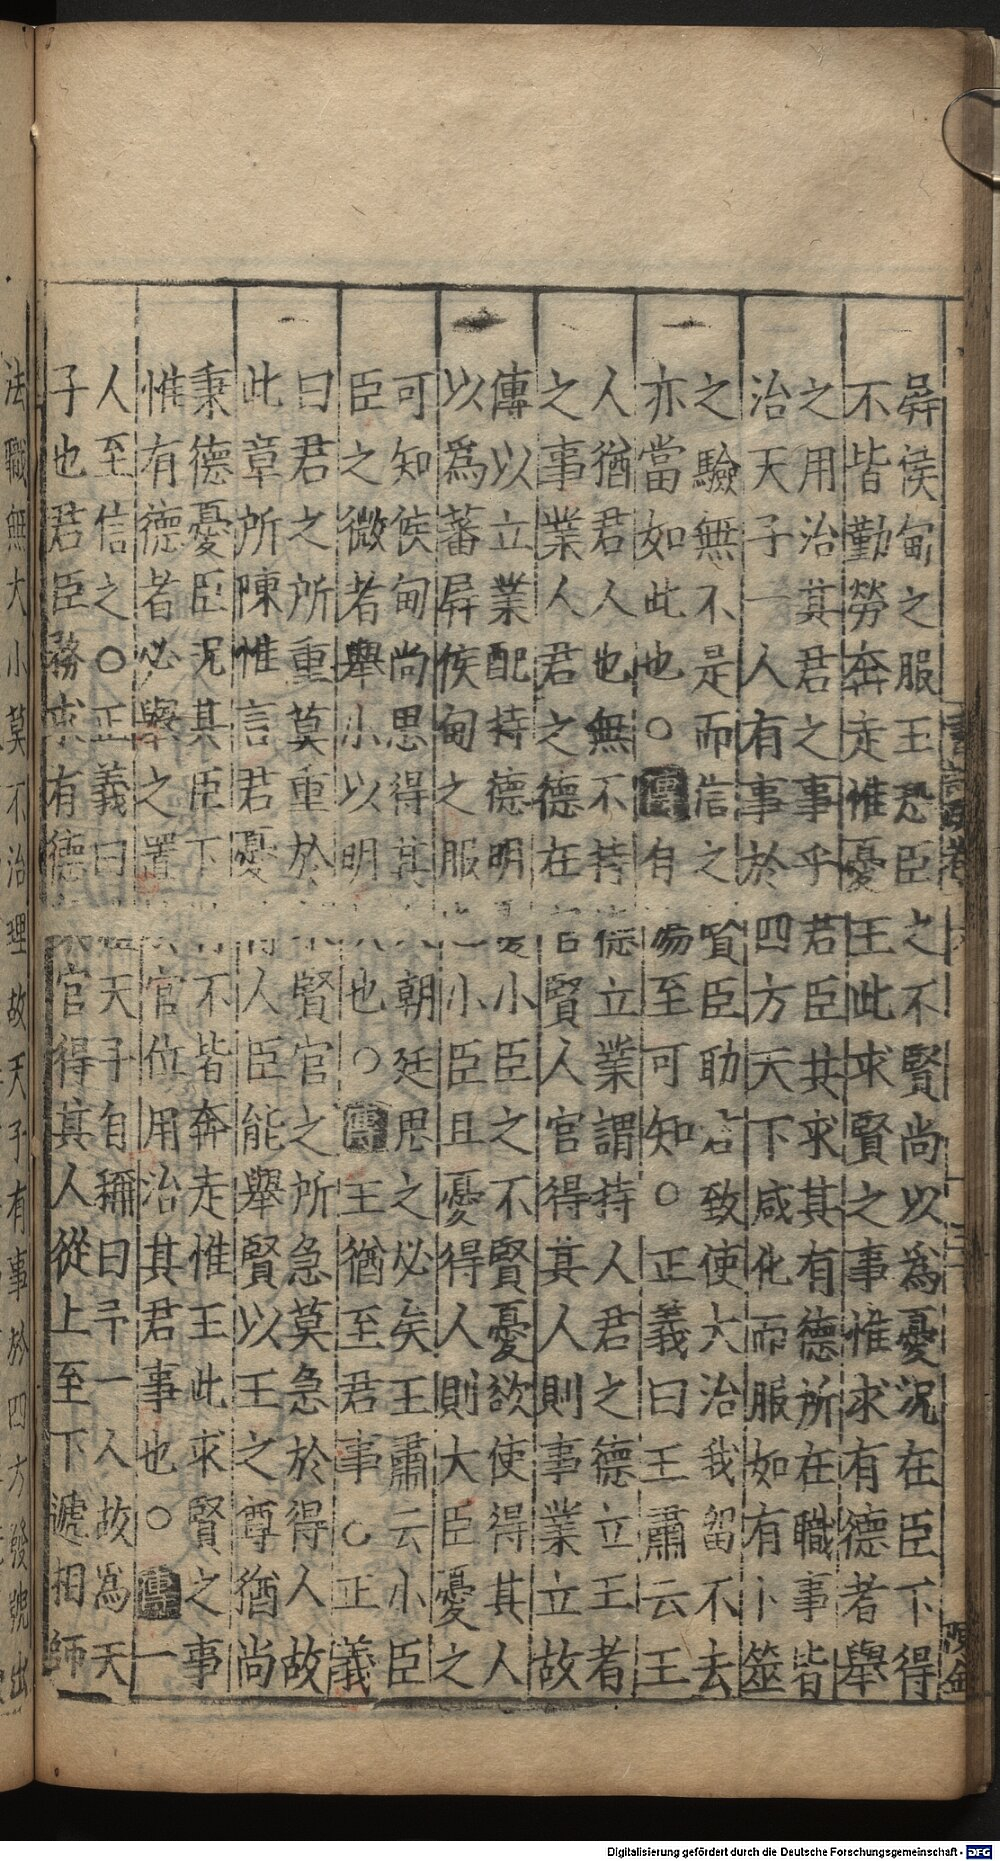 屏侯甸之服王恐臣之不賢尚以為憂況在臣下得
不皆勤勞奔走惟憂王此求賢之事惟求有德者舉
之用治其君之事乎君臣共求其有德所在職事皆
治天子一人有事於四方天下咸化而服如有卜筮
之驗無不是而信之賢臣助君致使大治我留不去
亦當如此也○傳有易至可知○正義曰王肅云王
人猶君人也無不持德立業謂持人君之德立王者
之事業人君之德在官賢人官得其人則事業立故
傳以立業配持德明憂小臣之不賢憂欲使得其人
以為蕃屏侯甸之服也小臣且憂得人則大臣憂之
可知侯甸尚思得其人朝廷思之必矣王肅云小臣
臣之微者舉小以明大也○傳王猶至君事○正義
曰君之所重莫重於求賢官之所急莫急於得人故
此章所陳惟言君憂得人臣能舉賢以王之尊猶尚
秉德憂臣況其臣下得不皆奔走惟王此求賢之事
惟有德者必舉之置於官位用治其君事也○傳一
人至信之○正義曰禮天子自稱曰予一人故為天
子也君臣務求有德眾官得其人從上至下遞相師
法職無大小莫不治理故天子有事於四方發號出
Digitalisierung gefördert durch die Deutsche Forschungsgemeinschaft - DFG